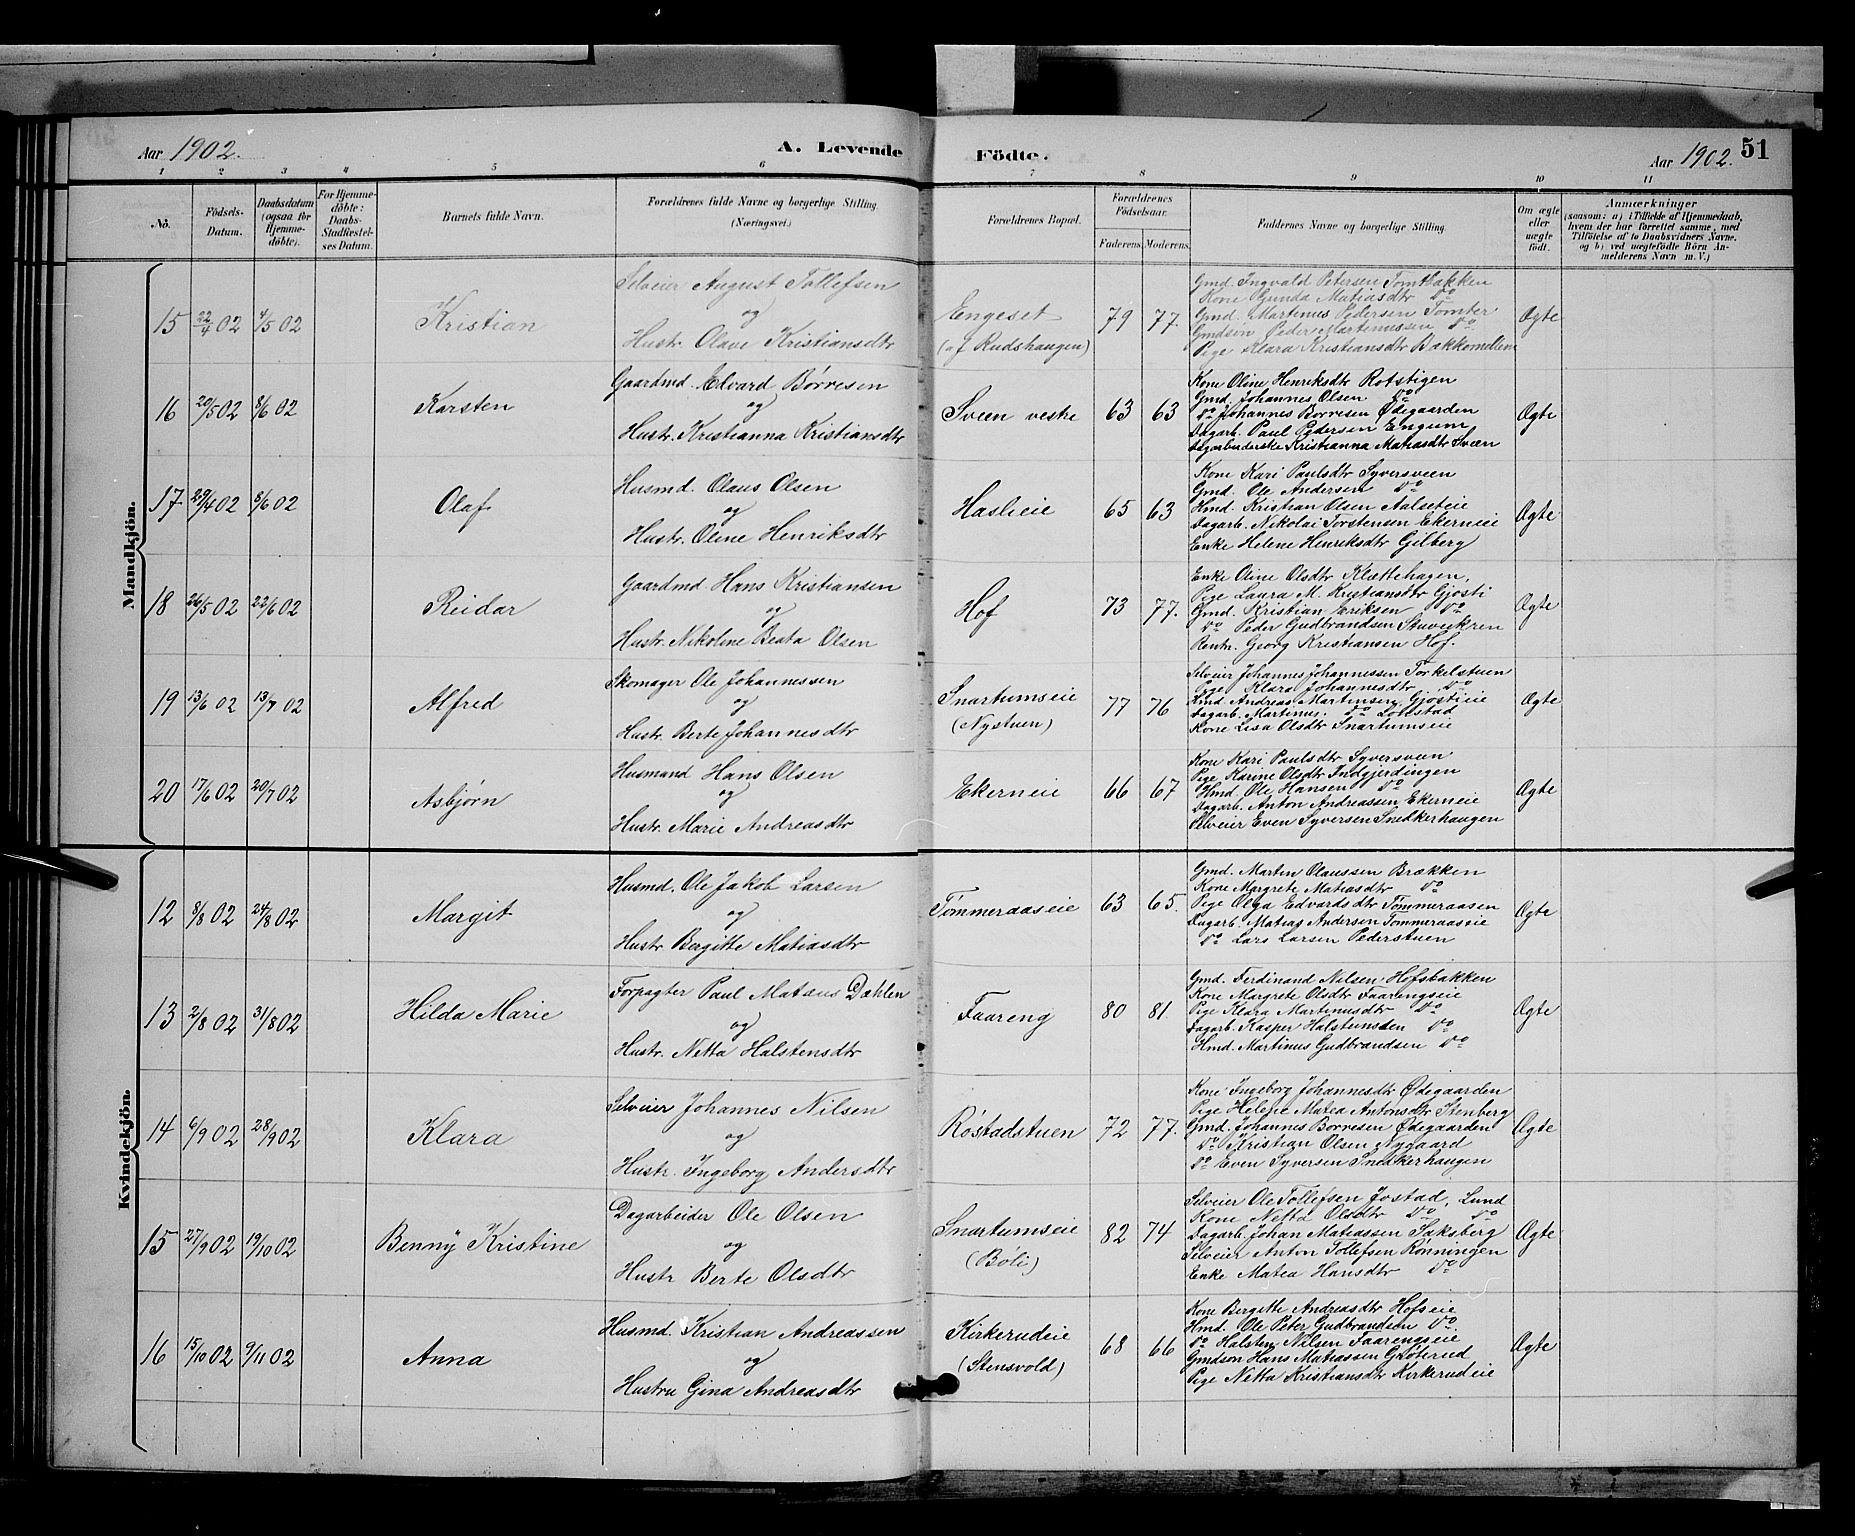 Aar 1902. A. Levende Födte. Aar 1902. 51
1 2 3 4 5 6 7 8 9 10 11
No. Födsels-Datum. Daabsdatum (ogsaa for Hjemmedöbte). For Hjemmedöbte: Daabs-Stadfæstelses Datum. Barnets fulde Navn. Forældrenes fulde Navne og borgerlige Stilling. (Næringsvei.) Forældrenes Bopæl. Forældrenes Födselsaar. Faderens. Moderens. Faddernes Navne og borgerlige Stilling. Om ægte eller uægte födt. Anmærkninger (saasom: a) i Tilfælde af Hjemmedaab, hvem der har forrettet samme, med Tilföielse af to Daabsvidners Navne, og b) ved uægtefödte Börn Anmelderens Navn m. V.)
Mandkjön.
15 22/4 02 4/5 02 Kristian
Selveier August Tollefsen
og
Hustr. Olave Kristiansdtr
Engeset
(af Rudshaugen)
79 77
Gmd. Ingvald Petersen Tomtbakken
Kone Gunda Matiasdtr do
Gmd. Martinus Pedersen Tomter
Gmdsøn Peder Martinussen do
Pige Klara Kristiansdtr Bakkomellem
Ægte
16 20/5 02 8/6 02 Karsten
Gaardmd. Edvard Børresen
og
Hustr. Kristianna Kristiansdtr
Sveen vestre
63 63
Kone Oline Henriksdtr Rotstigen
Gmd. Johannes Olsen do
do Johannes Borresen Ødegaarden
Dagarb. Paul Pedersen Engum
Dagarbeiderske Kristianna Matiasdtr Sveen
Ægte
17 29/4 02 8/6 02 Olaf
Husmd. Olaus Olsen
og
Hustr. Oline Henriksdtr
Haslieie
65 63
Kone Kari Paulsdtr Syversveen
Gmd. Ole Andersen do
Hmd. Kristian Olsen Aalseteie
Dagarb. Nikolai Torstensen Ekerneie
Enke Helene Henriksdtr Gilberg
Ægte
18 26/5 02 22/6 02 Reidar
Gaardmd Hans Kristiansen
og
Hustr. Nikoline Beata Olsen
Hof
73 77.
Enke Oline Olsdtr Klættehagen.
Pige Laura M. Kristiansdtr Gjøsti
Gmd. Kristian Eriksen do
do Peder Gudbrandsen Stuvekren
Rentr. Georg Kristiansen Hof.
Ægte
19 13/6 02 13/7 02 Alfred
Skomager Ole Johannessen
og
Hustr. Berte Johannesdtr
Snartumseie
(Nystuen)
77 76
Selveier Johannes Johannessen Torkelstuen
Pige Klara Johannesdtr do
Hmd. Andreas Martinsen Gjøstieie
Dagarb. Martinus do Løbestad
Kone Lisa Olsdtr Snartumseie
Ægte
20 17/6 02 20/7 02 Asbjørn
Husmand Hans Olsen
og
Hustr. Marie Andreasdtr
Ekerneie
66 67
Kone Kari Paulsdtr Syversveen
Pige Karine Olsdtr Indgjerdingen
Hmd. Ole Hansen do
Dagarb. Anton Andreassen Ekerneie
Selveier Even Syversen Snedkerhaugen
Ægte
Kvindekjön.
12 8/8 02 24/8 02 Margit
Husmd. Ole Jakob Larsen
og
Hustr Bergitte Matiasdtr
Tømmeraaseie
63 65.
Gmd. Martin Olaussen Brækken
Kone Margrete Matiasdtr do
Pige Olga Edvardsdtr Tømmeraasen
Dagarb. Matias Andersen Tømmeraaseie
do Lars Larsen Pederstuen
Ægte
13 2/8 02 31/8 02 Hilda Marie
Forpagter Paul Mataus Dæhlen
og
Hustr. Netta Halstensdtr
Faareng
80 81.
Gmd. Ferdinand Nilsen Hofsbakken
Kone Margrete Olsdtr Faarengseie
Pige Klara Martinusdtr do
Dagarb. Kasper Halstensden do
Hmd. Martinus Gudbrandsen do
Ægte
14 6/9 02 28/9 02 Klara
Selveier Johannes Nilsen
og
Hustr. Ingeborg Andersdtr
Røstadstuen
72 77.
Kone Ingeborg Johannesdtr Ødegaarden
Pige Helene Matea Antonsdtr Stenberg
Gmd. Johannes Borresen Ødegaarden
do Kristian Olsen Nygaard
do Even Syversen Snedkerhaugen
Ægte
15 27/9 02 19/10 02 Benny Kristine
Dagarbeider Ole Olsen
og
Hustr Berte Olsdtr
Snartumseie
(Bøli)
82 74
Selveier Ole Tollefsen Jostad, Lund
Kone Netta Olsdtr do do
Dagarb. Johan Matiassen Saksberg
Selveier Anton Tollefsen Rønningen
Enke Matea Hansdtr do
Ægte
16 15/10 02 9/11 02 Anna
Husmd. Kristian Andreassen
og
Hustru Gina Andreasdtr
Kirkerudeie
(Stensvold)
68 66
Kone Bergitte Andreasdtr Hofseie
Hmd. Ole Peter Gudbrandsen do
do Halsten Nilsen Faarengseie
Gmdsøn Hans Matiassen Grøterud
Pige Netta Kristiansdtr Kirkerudeie
Ægte